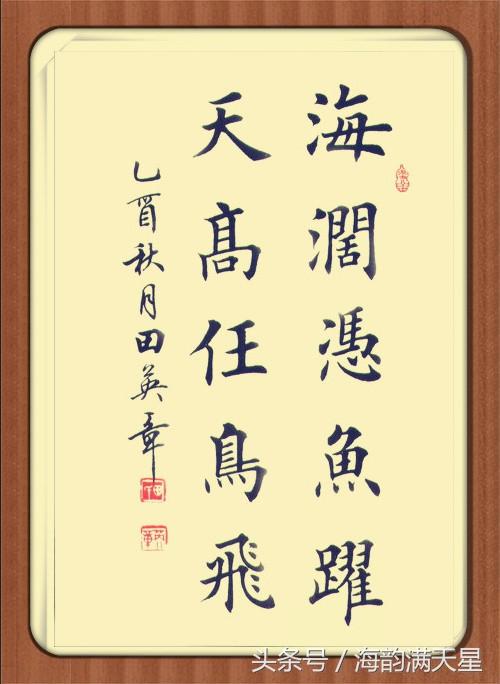 海濶憑魚躍
天髙任鳥飛
乙酉秋月田英章
头条号 / 海韵满天星